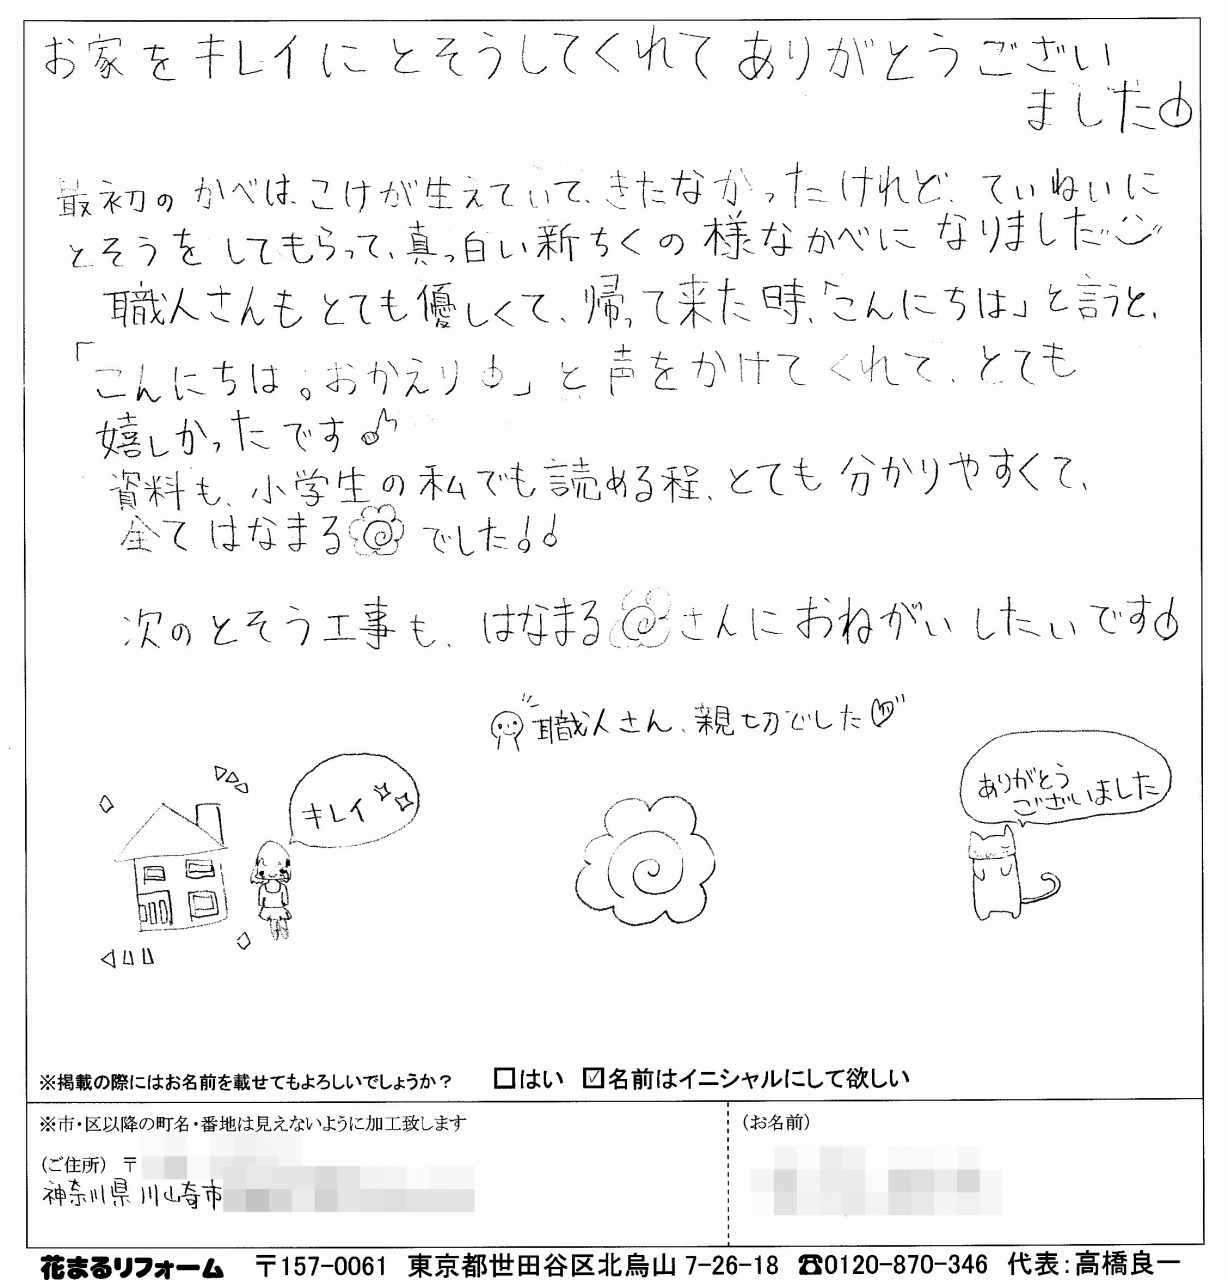 お家をキレイにとそうしてくれてありがとうござい
ました!
最初のかべは、こけが生えていて、きたなかったけれど、ていねいに
とそうをしてもらって、真っ白い新ちくの様なかべになりました
職人さんもとても優しくて、帰って来た時、「こんにちは」と言うと、
「こんにちは。おかえり!」と声をかけてくれて、とても
嬉しかったです♪
資料も、小学生の私でも読める程、とても分かりやすくて、
全てはなまるでした!!
次のとそう工事も、はなまるさんにおねがいしたいです!
職人さん、親切でした♡
キレイ
ありがとう
ございました
※掲載の際にはお名前を載せてもよろしいでしょうか? □はい ☑名前はイニシャルにして欲しい
※市・区以降の町名・番地は見えないように加工致します
(お名前)
(ご住所) 〒
神奈川県川崎市
花まるリフォーム 〒157-0061 東京都世田谷区北烏山7-26-18 ☎0120-870-346 代表:高橋良一